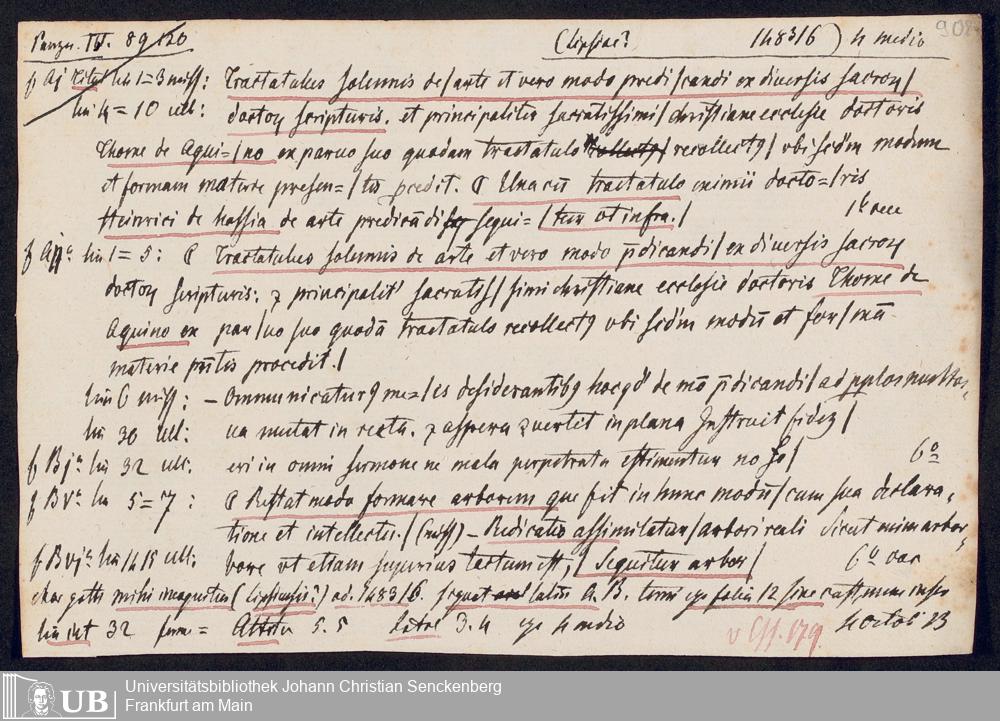 Panzer. IV. 89 120 (Lipsiae? 1483/6) 4 medio 908
f Aj Titul lin 1=3 miss: Tractatulus solennis de/arte et vero modo predi/candi ex diversis sacroꝝ/
lin 4 = 10 ult: doctoꝝ scripturis. et principaliter sacratissimi/christiane ecclesie doctoris
Thome de Aqui=/no ex paruo suo quodam tractatulo recollectꝯ/ vbi scd'm modum
et formam materie presen=/tis p̱cedit. ¶ Una cū tractatulo eximii docto=/ris
Heinrici de Hassia de arte predicādi sequi=/tur vt infra./ 1b vac
f Aijᵃ lin 1=5: ¶ Tractatulus solennis de arte et vero modo p̄dicandi/ex diversis sacroꝝ
doctoꝝ scripturis: ⁊ principalit' sacratis/simi christiane ecclesie doctoris Thome de
Aquino ex par/uo suo quodā tractatulo recollectꝯ vbi scd'm modū et for/mā
materie pn̄tis procedit./
lin 6 miss: – Ommunicaturꝯ me=/is desiderantibꝯ hoc qd' de mō p̄dicandi/
lin 30 ult: ua mutat in recta. ⁊ aspera ꝯuertit in plana Instruit fidez/
f Bjᵃ lin 32 ult. eri in omni sermone ne mala perpetrata estimentur no so/ 6º
f Bvᵃ lin 5=7: ¶ Restat modo formare arborem que fit in hunc modū/cum sua declara,
tione et intellectu./(miss) – Predicatio assimilatur/arbori reali Sicut enim arbor
f Bvjᵃ lin 14 15 ult: bore vt etiam superius tactum est,/Sequitur arbor/ 6b vac
char goth min maguntin (Lipsiensis?) ad. 1483/6. A. B. folia 12 sine cust num
lin int 32 4 medio v Cff. 179. 4 Octob 13
Universitätsbibliothek Johann Christian Senckenberg
UB Frankfurt am Main